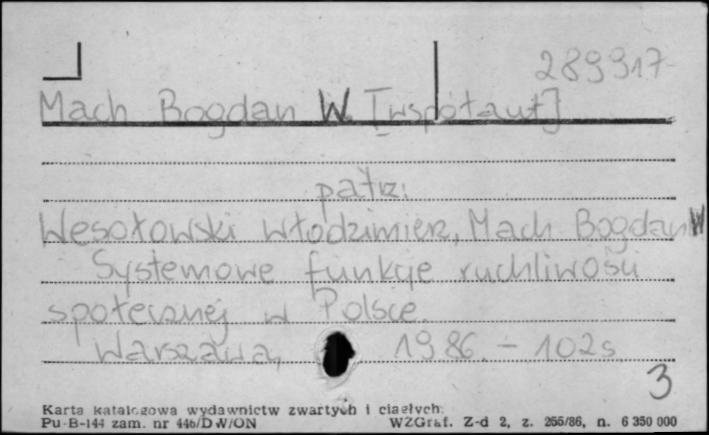 289917
Mach Bogdan W. [współaut]
patrz:
Wesołowski Włodzimierz, Mach Bogdan W
Systemowe funkcje ruchliwości
społecznej w Polsce.
Warszawa, 1986. - 102s.
3
Karta katalogowa wydawnictw zwartych i ciągłych.
Pu-B-144 zam. nr 446/DW/ON WZGraf. Z-d 2, z. 265/86, n. 6 350 000